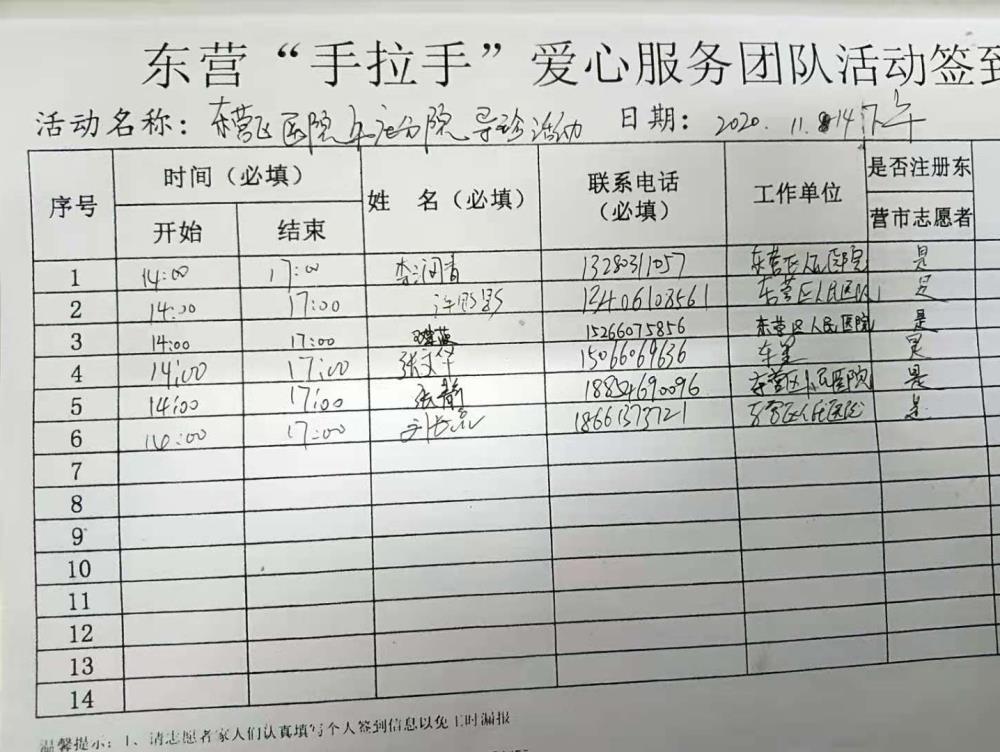 东营“手拉手”爱心服务团队活动签到
活动名称：东营区医院 分院导诊活动 日期：2020.11.14下午
序号 时间（必填） 姓 名（必填） 联系电话（必填） 工作单位 是否注册东营市志愿者
开始 结束
1 14:00 17:00 李润青 13280311057 东营区人民医院 是
2 14:00 17:00 许 13406108561 东营区人民医院 是
3 14:00 17:00 15266075856 东营区人民医院 是
4 14:00 17:00 张文华 15066069636 是
5 14:00 17:00 张静 18854690096 东营区人民医院 是
6 14:00 17:00 18661373721 东营区人民医院 是
7
8
9
10
11
12
13
14
温馨提示：1、请志愿者家人们认真填写个人签到信息以免工时漏报